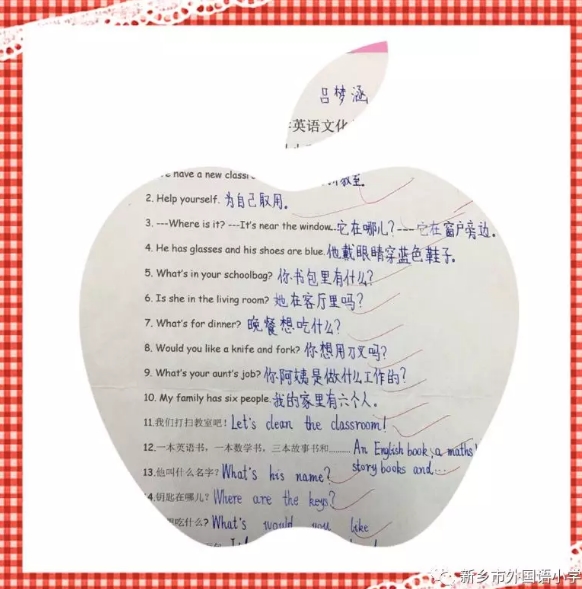 吕梦涵
英语文化
have a new classr
2. Help yourself. 为自己取用。
3. ---Where is it? ---It's near the window. 它在哪儿?---它在窗户旁边.
4. He has glasses and his shoes are blue. 他戴眼睛穿蓝色鞋子。
5. What's in your schoolbag? 你书包里有什么?
6. Is she in the living room? 她在客厅里吗?
7. What's for dinner? 晚餐想吃什么?
8. Would you like a knife and fork? 你想用刀叉吗?
9. What's your aunt's job? 你阿姨是做什么工作的?
10. My family has six people. 我的家里有六个人。
11.我们打扫教室吧! Let's clean the classroom!
12.一本英语书，一本数学书，三本故事书和......... An English book, a maths
story books and...
13.他叫什么名字? What's his name?
14.钥匙在哪儿? Where are the keys?
吃什么? What's would you like
新乡市外国语小学